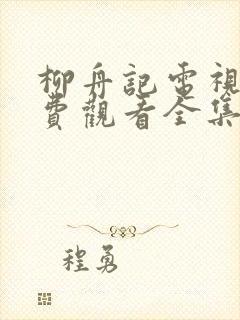 柳舟記電視
費觀看全集
程勇